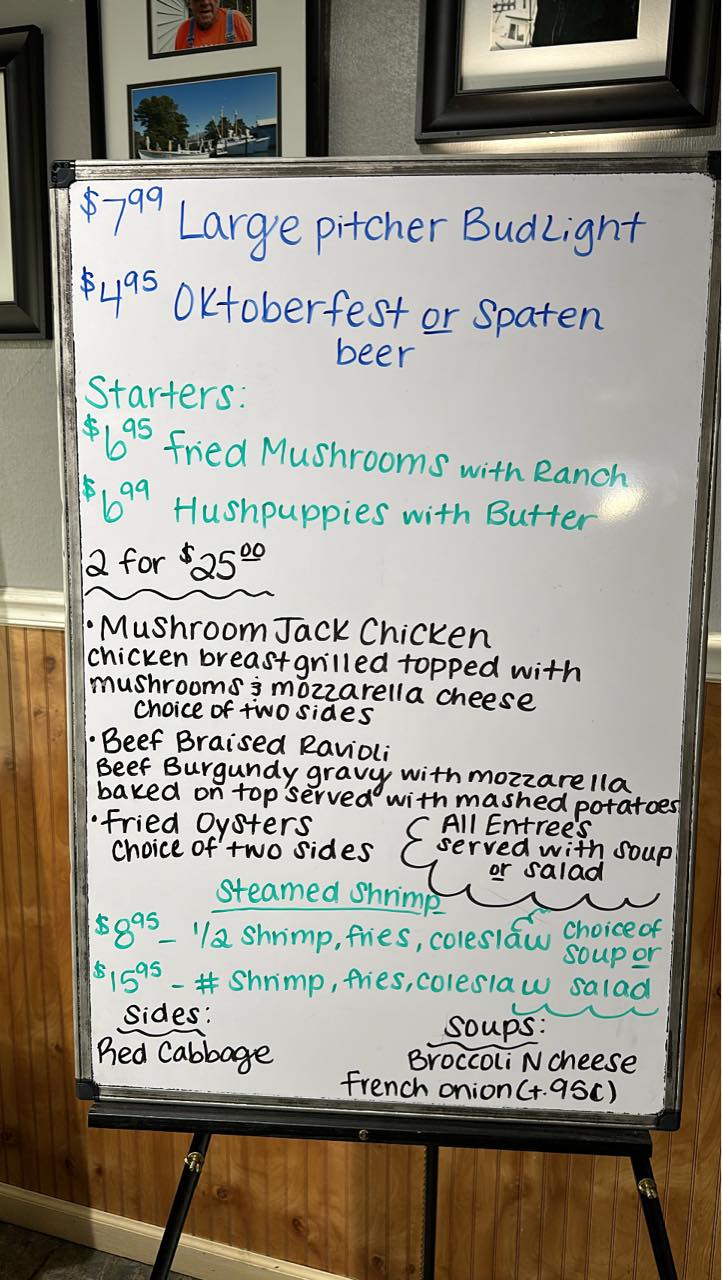 $7.99 Large pitcher BudLight
$4.95 Oktoberfest or Spaten
beer
Starters:
$6.95 fried Mushrooms with Ranch
$6.99 Hushpuppies with Butter
2 for $25.00
• Mushroom Jack Chicken
chicken breast grilled topped with
mushrooms & mozzarella cheese
Choice of two sides
• Beef Braised Ravioli
Beef Burgundy gravy with mozzarella
baked on top served with mashed potatoes
• Fried Oysters
Choice of two sides
All Entrees
served with soup
or salad
Steamed Shrimp
$8.95 - 1/2 Shrimp, fries, coleslaw
$15.95 - # Shrimp, fries, coleslaw
Choice of
soup or
salad
Sides:
Red Cabbage
Soups:
Broccoli N cheese
French onion (+.95¢)